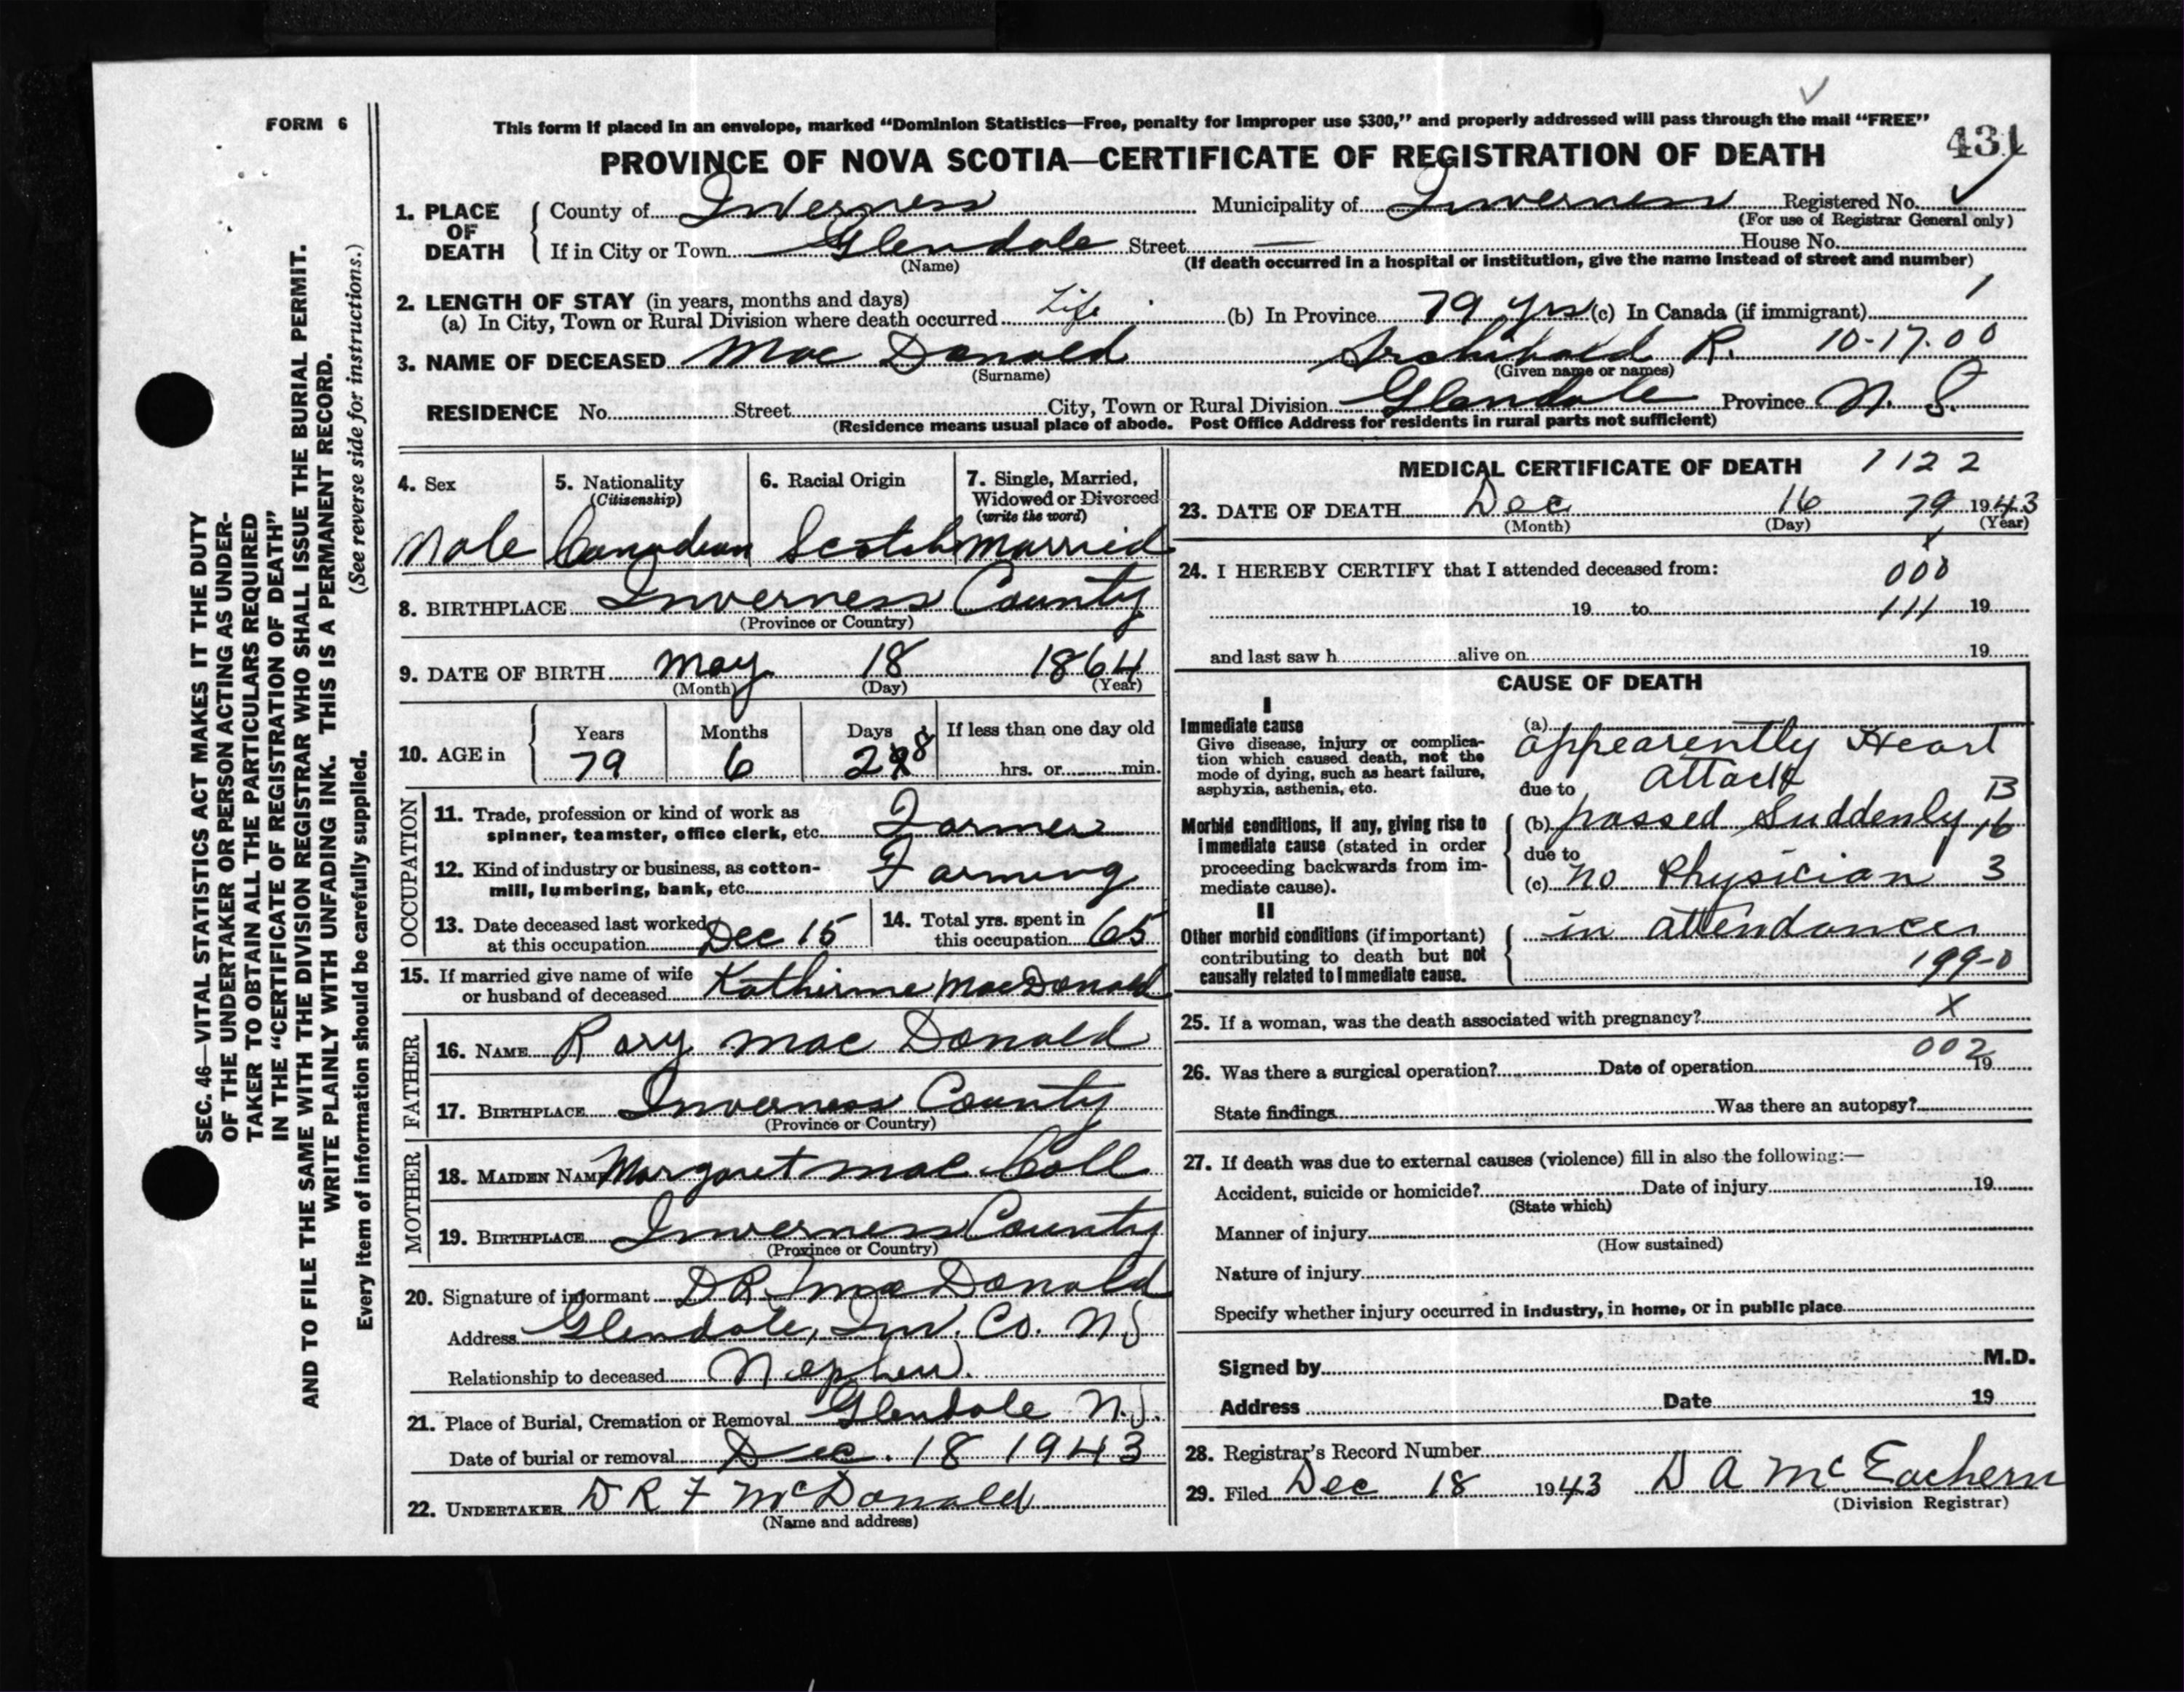 FORM 6
This form if placed in an envelope, marked “Dominion Statistics—Free, penalty for improper use $300,” and properly addressed will pass through the mail “FREE”
431
PROVINCE OF NOVA SCOTIA—CERTIFICATE OF REGISTRATION OF DEATH
1. PLACE OF DEATH
County of Inverness Municipality of Inverness Registered No.
(For use of Registrar General only)
If in City or Town Glendale Street — House No.
(Name) (If death occurred in a hospital or institution, give the name instead of street and number)
2. LENGTH OF STAY (in years, months and days)
(a) In City, Town or Rural Division where death occurred Life (b) In Province 79 yrs (c) In Canada (if immigrant) 1
3. NAME OF DECEASED Mac Donald Archibald R. 10-17-00
(Surname) (Given name or names)
RESIDENCE No. Street City, Town or Rural Division Glendale Province N. S.
(Residence means usual place of abode. Post Office Address for residents in rural parts not sufficient)
4. Sex
Male
5. Nationality
(Citizenship)
Canadian
6. Racial Origin
Scotch
7. Single, Married, Widowed or Divorced
(write the word)
Married
8. BIRTHPLACE Inverness County
(Province or Country)
9. DATE OF BIRTH May 18 1864
(Month) (Day) (Year)
10. AGE in
Years Months Days If less than one day old
79 6 28 hrs. or min.
OCCUPATION
11. Trade, profession or kind of work as
spinner, teamster, office clerk, etc. Farmer
12. Kind of industry or business, as cotton-
mill, lumbering, bank, etc. Farming
13. Date deceased last worked
at this occupation Dec 15
14. Total yrs. spent in
this occupation 65
15. If married give name of wife
or husband of deceased Katherine MacDonald
FATHER
16. NAME Rory Mac Donald
17. BIRTHPLACE Inverness County
(Province or Country)
MOTHER
18. MAIDEN NAME Margaret Mac Coll
19. BIRTHPLACE Inverness County
(Province or Country)
20. Signature of informant D R Mac Donald
Address Glendale, Inv. Co. N S
Relationship to deceased Nephew.
21. Place of Burial, Cremation or Removal Glendale N.S.
Date of burial or removal Dec. 18 1943
22. UNDERTAKER D R F McDonald
(Name and address)
MEDICAL CERTIFICATE OF DEATH 1122
23. DATE OF DEATH Dec 16 79 1943
(Month) (Day) (Year)
x
24. I HEREBY CERTIFY that I attended deceased from:
000
19 to 111 19
and last saw h alive on 19
CAUSE OF DEATH
I
Immediate cause
Give disease, injury or complica-
tion which caused death, not the
mode of dying, such as heart failure,
asphyxia, asthenia, etc.
(a)
appearently Heart
due to attack
B
Morbid conditions, if any, giving rise to
immediate cause (stated in order
proceeding backwards from im-
mediate cause).
(b) passed Suddenly 16
due to
(c) no Physician 3
II
Other morbid conditions (if important)
contributing to death but not
causally related to immediate cause.
in attendance
199-0
25. If a woman, was the death associated with pregnancy? X
002
26. Was there a surgical operation? Date of operation 19
State findings Was there an autopsy?
27. If death was due to external causes (violence) fill in also the following:—
Accident, suicide or homicide? Date of injury 19
(State which)
Manner of injury
(How sustained)
Nature of injury
Specify whether injury occurred in industry, in home, or in public place
Signed by M.D.
Address Date 19
28. Registrar's Record Number
29. Filed Dec 18 1943 D A McEachern
(Division Registrar)
SEC. 46—VITAL STATISTICS ACT MAKES IT THE DUTY
OF THE UNDERTAKER OR PERSON ACTING AS UNDER-
TAKER TO OBTAIN ALL THE PARTICULARS REQUIRED
IN THE “CERTIFICATE OF REGISTRATION OF DEATH”
AND TO FILE THE SAME WITH THE DIVISION REGISTRAR WHO SHALL ISSUE THE BURIAL PERMIT.
WRITE PLAINLY WITH UNFADING INK. THIS IS A PERMANENT RECORD.
Every item of information should be carefully supplied. (See reverse side for instructions.)